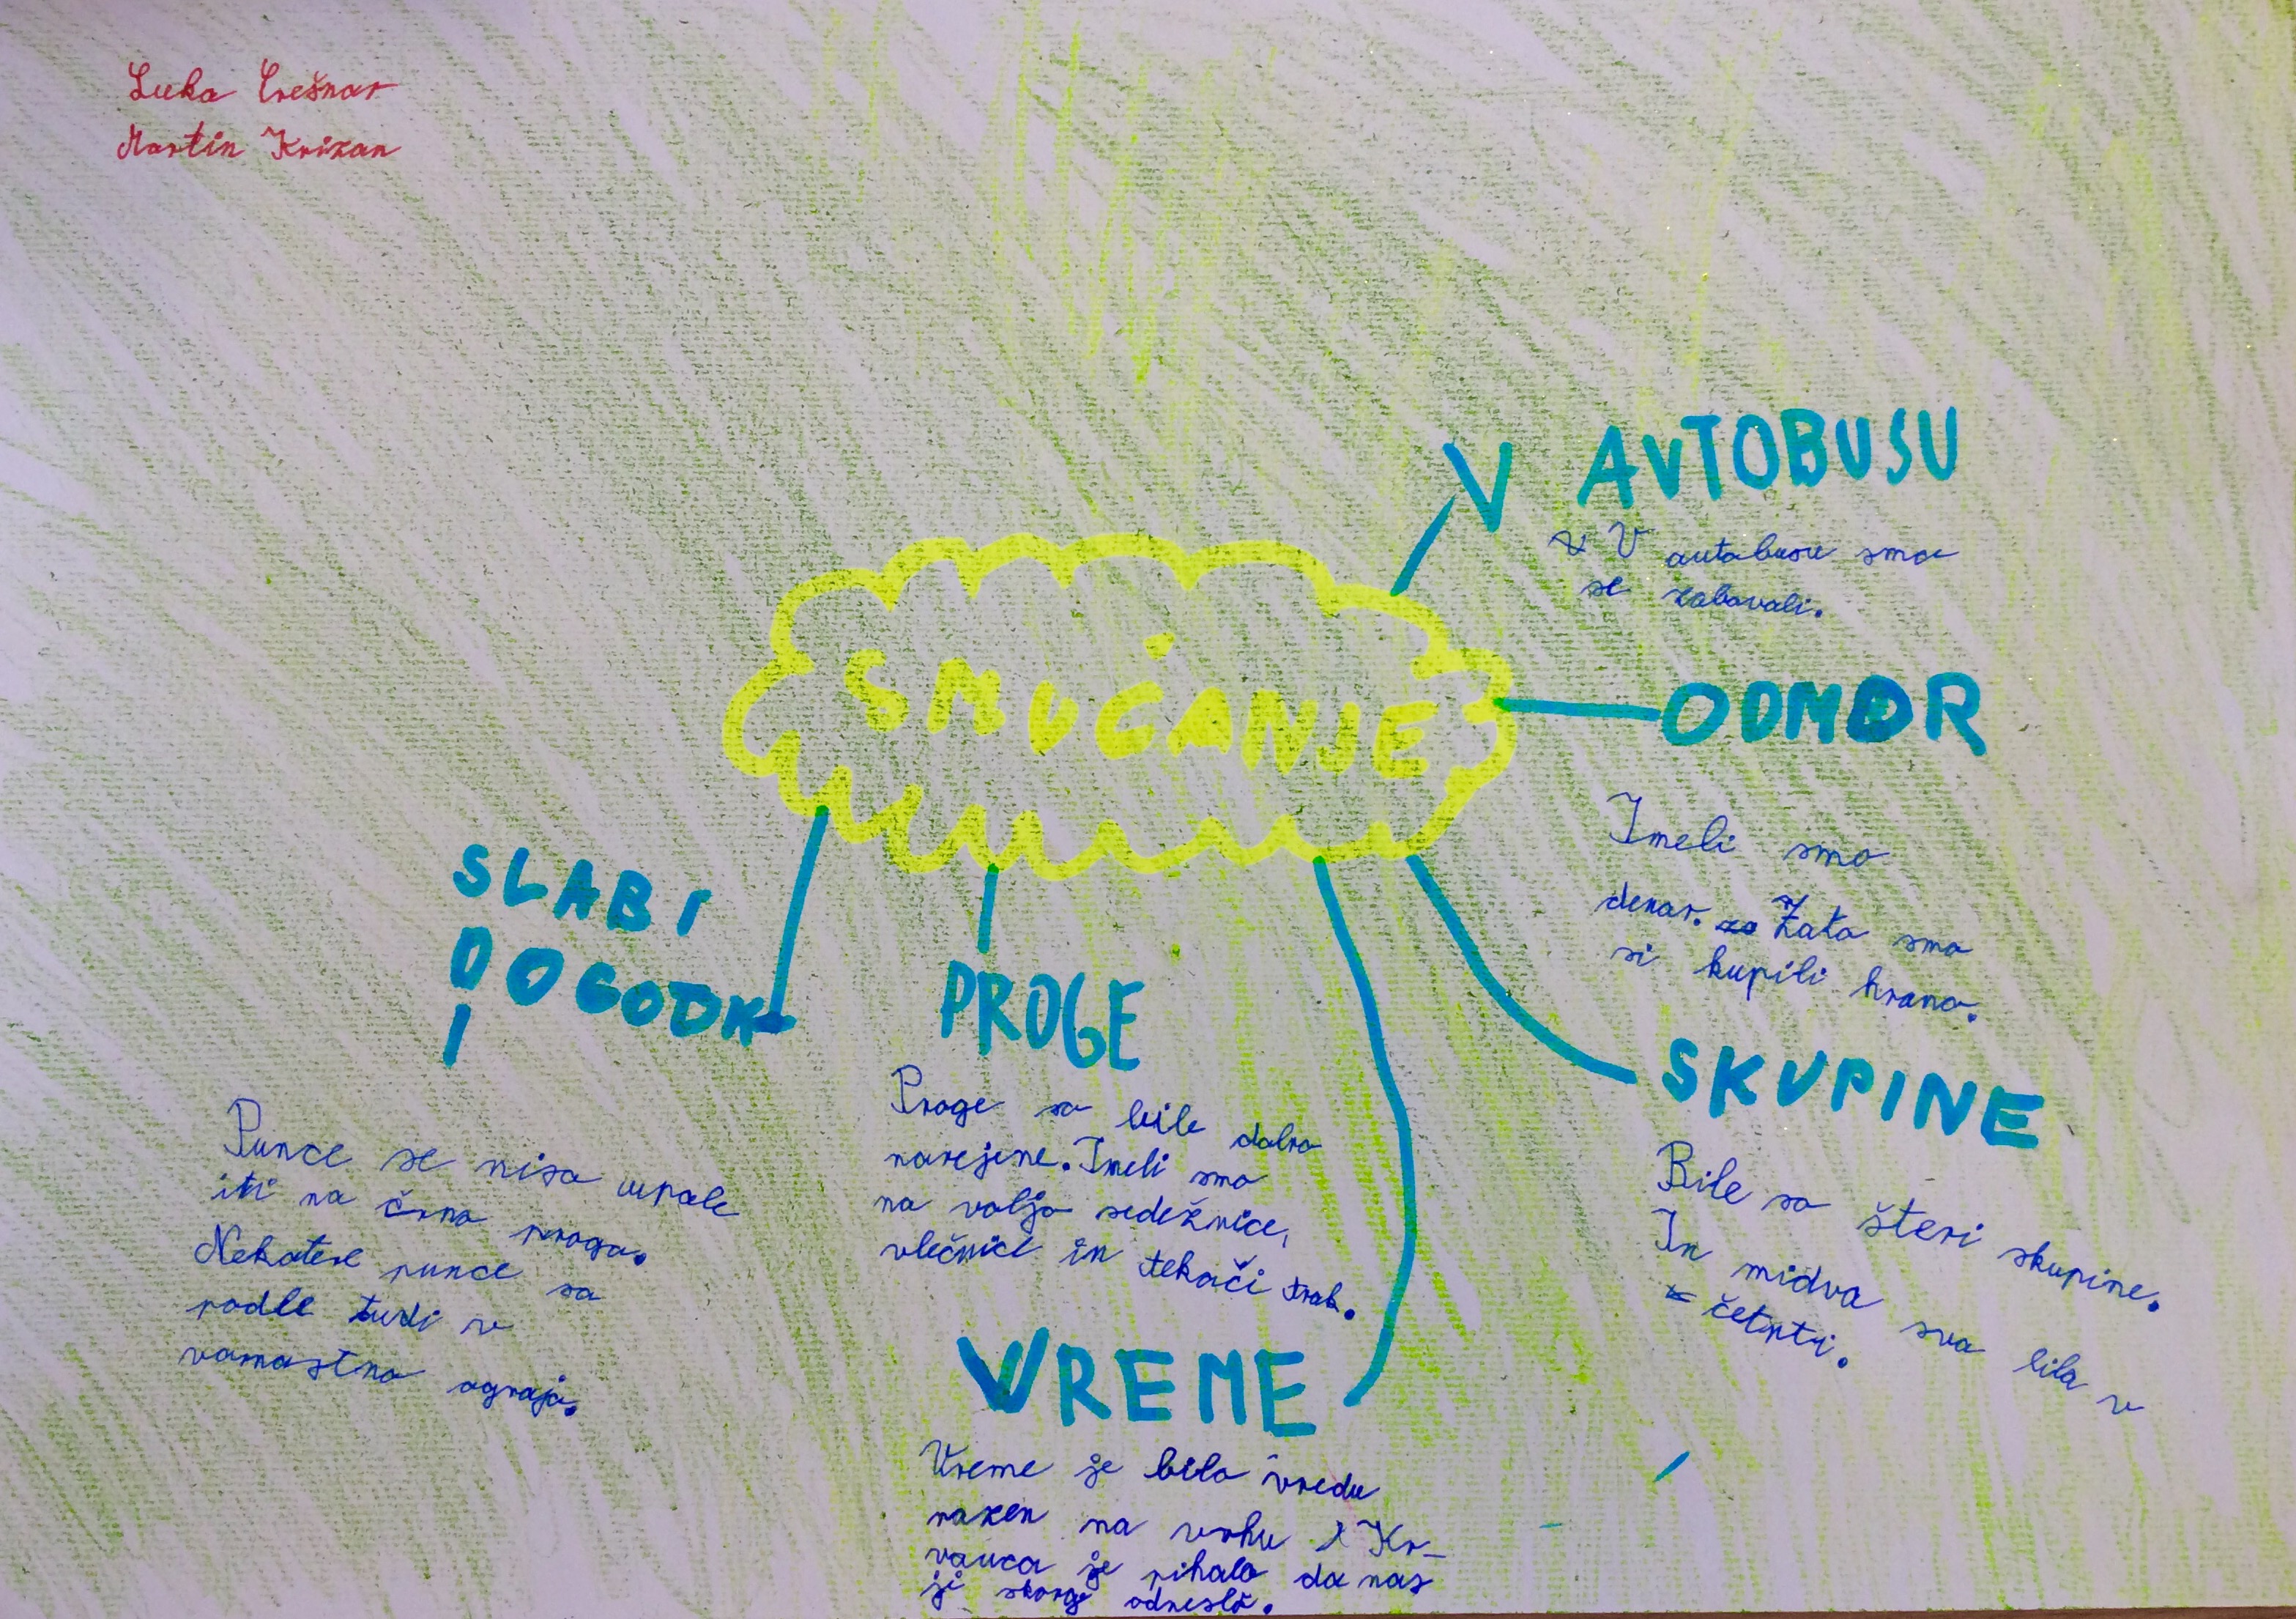 Luka Črešnar
Martin Križan
SMUČANJE
V AVTOBUSU
V autobusu smo
se zabavali.
ODMOR
Imeli smo
denar. Zato smo
si kupili hrano.
SKUPINE
Bile so šteri skupine.
In midva sva bila v
četrti.
SLABI
DOGODK
I
Punce se niso upale
iti na črno progo.
Nekatere punce so
padle tudi v
varnostno ograjo.
PROGE
Proge so bile dobro
narejene. Imeli smo
na voljo sedežnice,
vlečnice in tekači trak.
VREME
Vreme je bilo vredu
razen na vrhu Kr-
vauca je pihalo da nas
ji skorge odneslo.